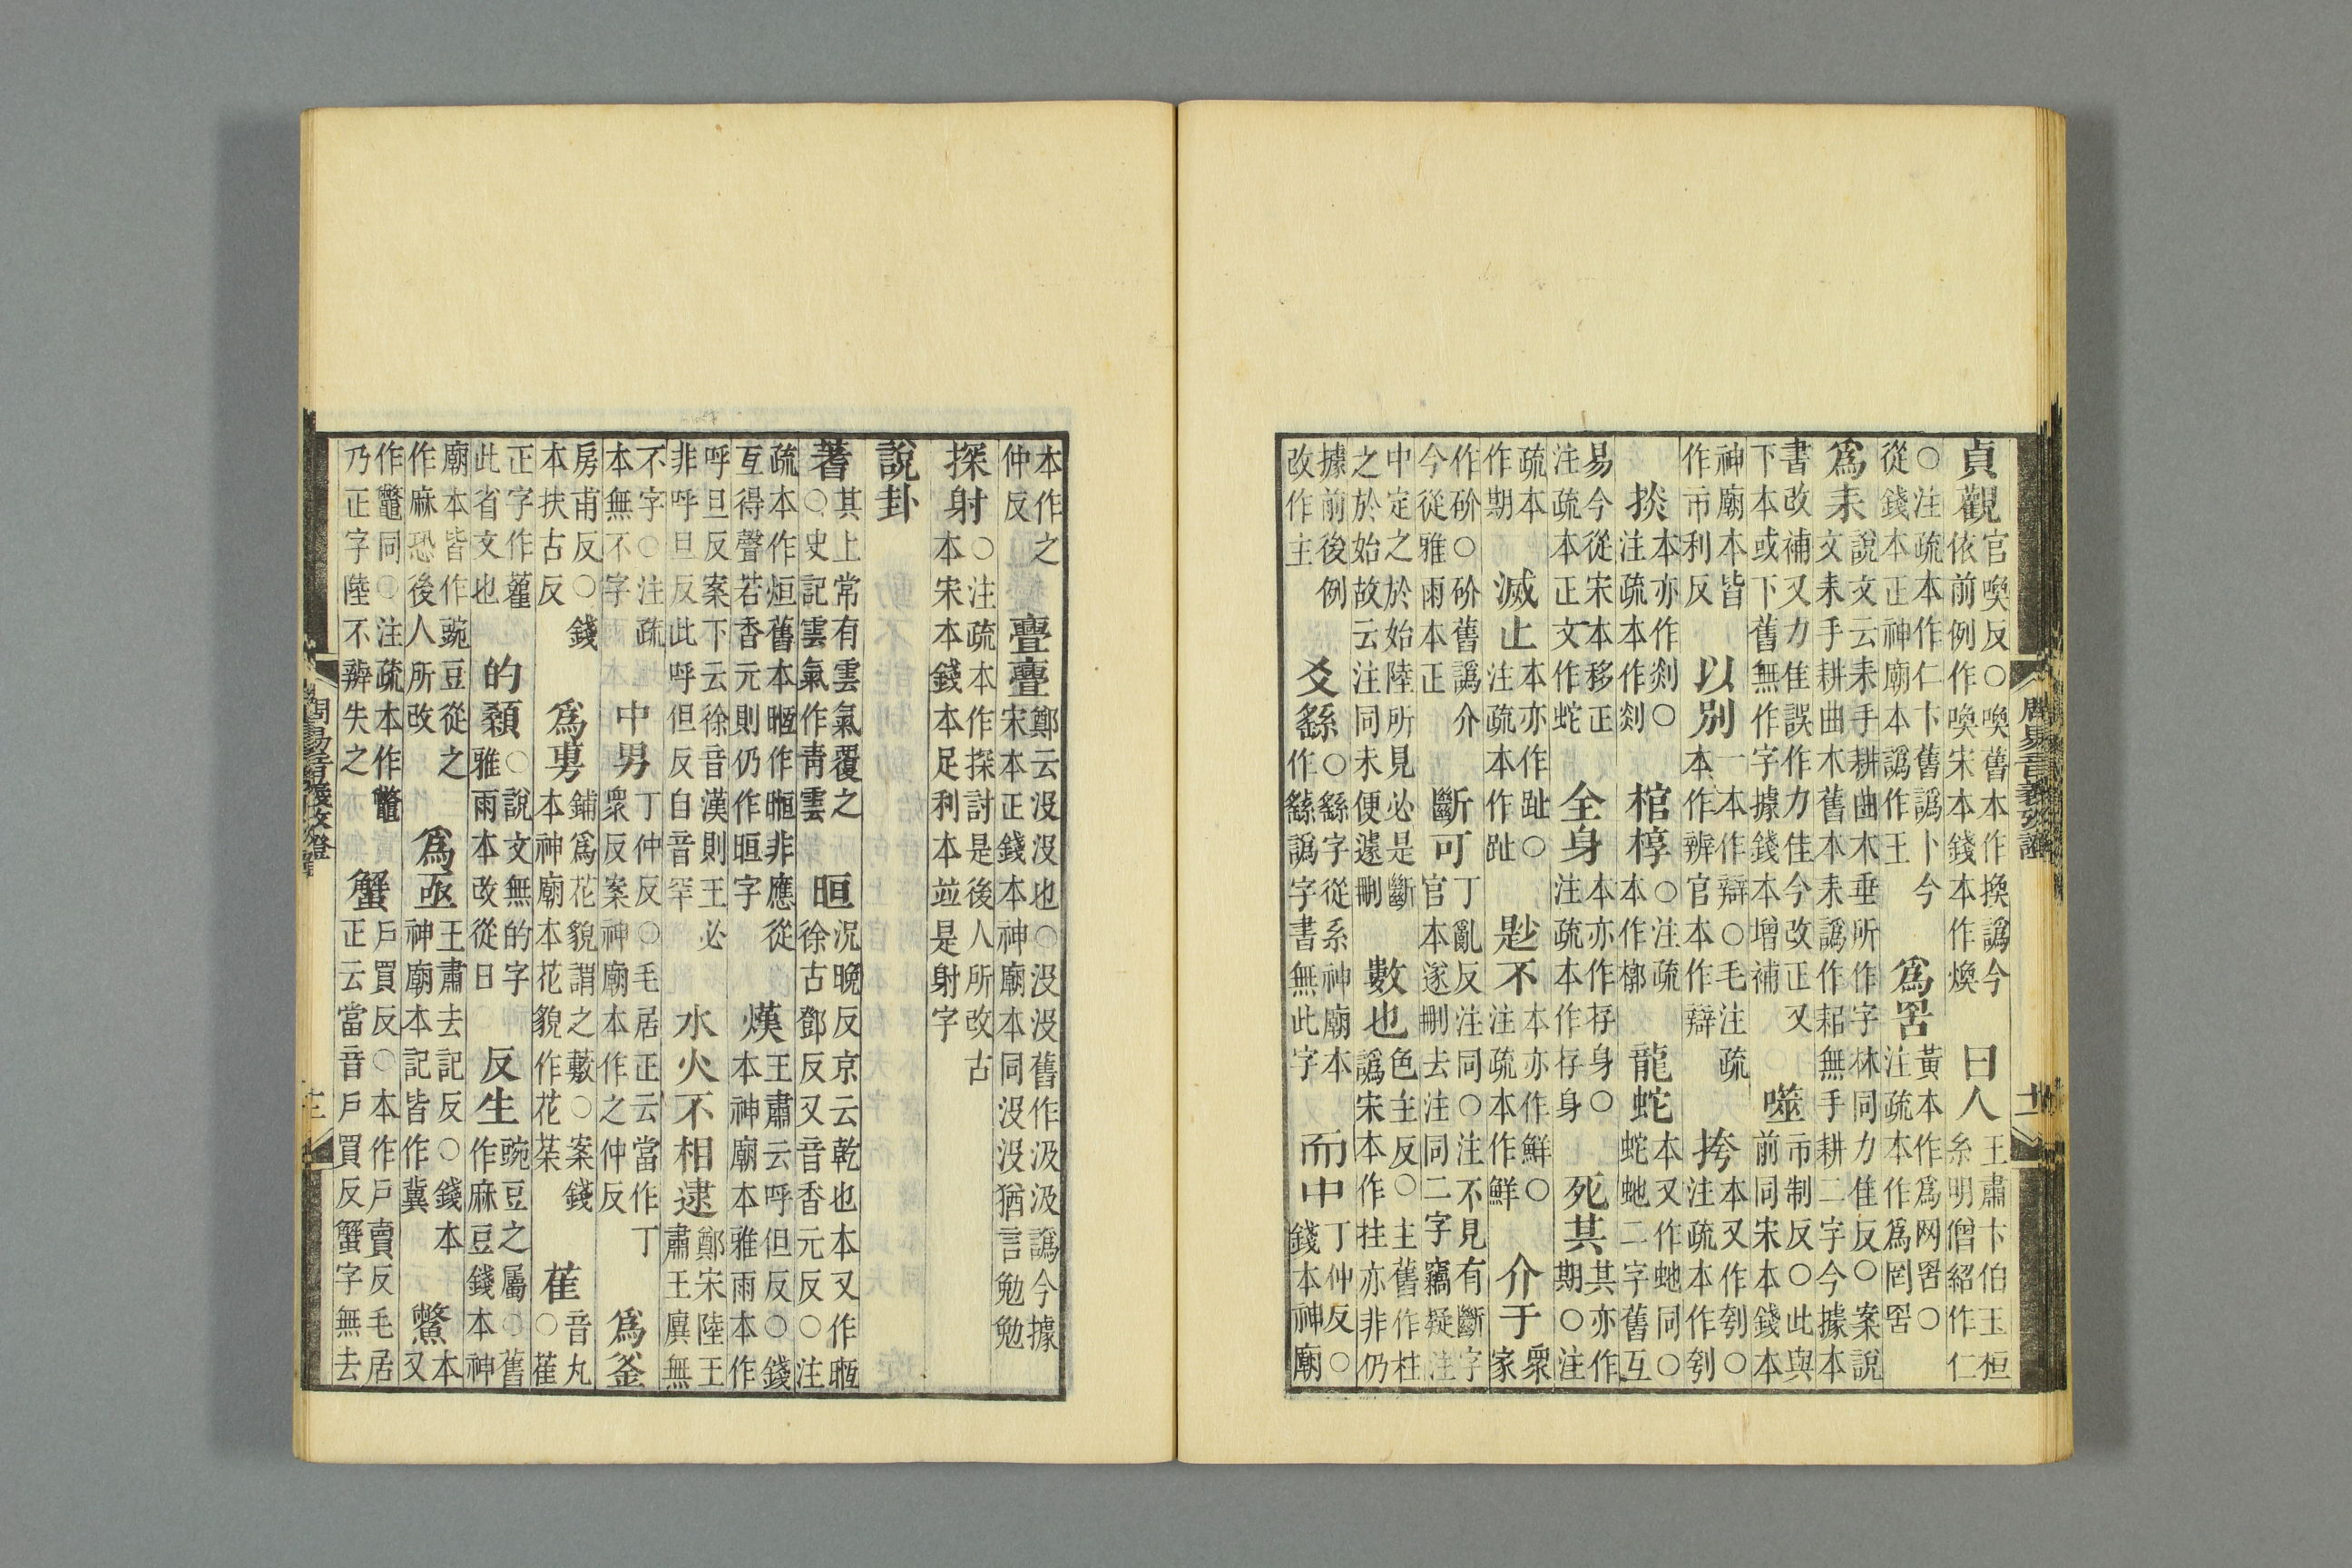 貞觀官喚反○喚舊本作換譌今依前例作喚宋本錢本作煥曰人王肅卞伯玉桓糸明僧紹作仁
○注疏本作仁卞舊譌卜今從錢本正神廟本譌作王爲罟黃本作爲网罟○注疏本作爲罔罟
爲耒說文云耒手耕曲木垂所作字林同力隹反○案說文耒手耕曲木舊本耒譌作耜無手耕二字今據本
書改補又力隹誤作力佳今改正又下本或下舊無作字據錢本增補噬市制反○此與前同宋本錢本
神廟本皆作市利反以別一本作辯○毛注疏本作辨官本作辯挎本又作刳○注疏本作刳
掞本亦作剡○注疏本作剡棺椁○注疏本作槨龍蛇本又作虵同○蛇虵二字舊互
易今從宋本移正注疏本正文作蛇全身本亦作存身○注疏本作存身死其其亦作期○注
疏本作期滅止本亦作趾○注疏本作趾尟不本亦作鮮○注疏本作鮮介于眾家
作砎○砎舊譌介今從雅雨本正斷可丁亂反注同○注不見有斷字官本遂刪去注同二字竊疑注
中定之於始陸所見必是斷之於始故云注同未便遽刪數也色主反○主舊作柱譌宋本作拄亦非仍
據前後例改作主爻繇○繇字從系神廟本作䌛譌字書無此字而中丁仲反○錢本神廟
周易音義攷證 十一
本作之仲反亹亹鄭云没没也○没没舊作汲汲譌今據宋本正錢本神廟本同没没猶言勉勉
探射○注疏本作探討是後人所改古本宋本錢本足利本並是射字
說卦
蓍其上常有雲氣覆之○史記雲氣作靑雲晅況晚反京云乾也本又作暅徐古鄧反又音香元反○注
疏本作烜舊本暅作㫜非應從互得聲若香元則仍作晅字熯王肅云呼但反○錢本神廟本雅雨本作
呼旦反案下云徐音漢則王必非呼旦反此呼但反白音罕水火不相逮鄭宋陸王肅王廙無
不字○注疏本無不字中男丁仲反○毛居正云當作丁眾反案神廟本作之仲反爲釜
房甫反○錢本扶古反爲旉鋪爲花貌謂之藪○案錢本神廟本花貌作花萑音丸○萑
正字作雚此省文也的顙○說文無的字雅雨本改從日反生豌豆之屬○舊作麻豆錢本神
廟本皆作豌豆從之作麻恐後人所改爲亟王肅去記反○錢本神廟本記皆作冀鱉本又
作鼈同○注疏本作鼈乃正字陸不辨失之蟹戶買反○本作戶賣反毛居正云當音戶買反蟹字無去
周易音義攷證 十二